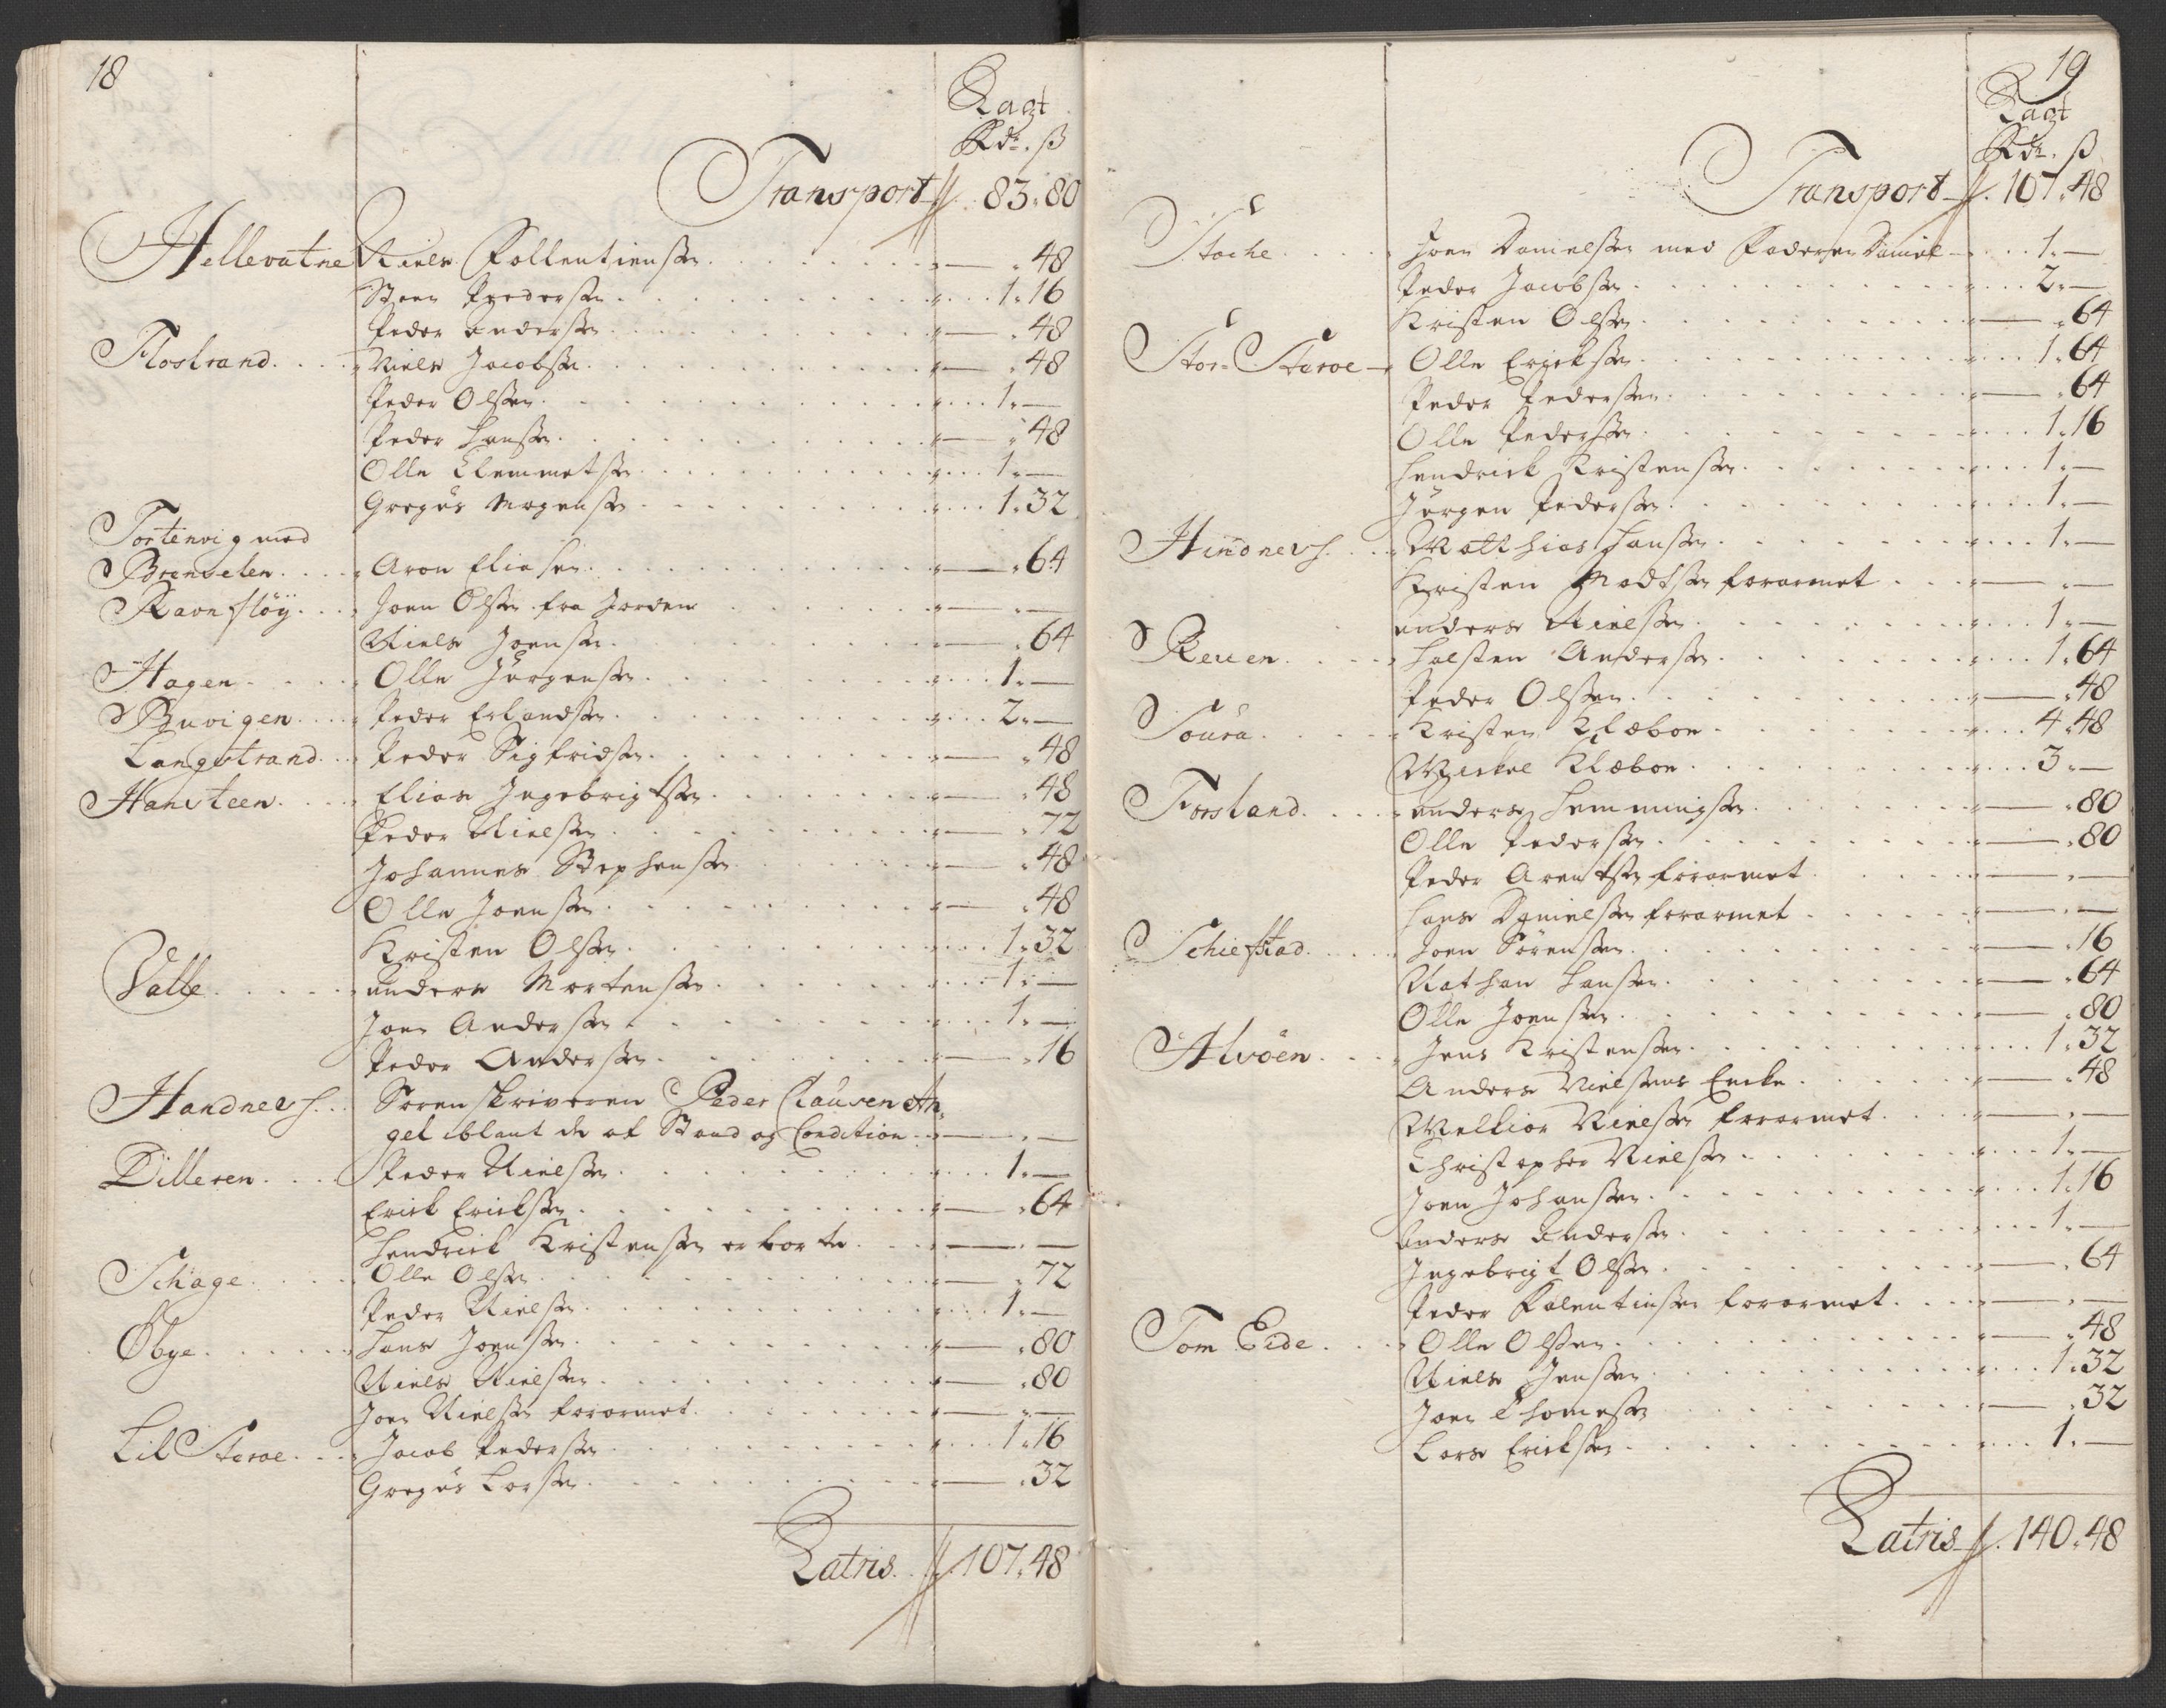 18
Lagt
Rdr. ß
Transport 83. 80
Hellevatne Niels Follentiensen 48
Steen Pedersen 1. 16
Peder Andersen 48
Flostrand Niels Jacobsen 48
Peder Olsen 1. —
Peder Hansen 48
Olle Clemmetsen 1. —
Gregus Mogensen 1. 32
Tortenvig med
Brenselen Aron Eliesen 64
Ravnfløÿ Joen Olsen fra Jorden —
Niels Joensen 64
Hagen Olle Jørgensen 1. —
Buvigen Peder Erlandsen 2. —
Langstrand Peder Sigfridsen 48
Hansteen Elias Ingebrigtsen 48
Peder Nielsen 72
Johannes Stephensen 48
Olle Joensen 48
Kristen Olsen 1. 32
Valle Anders Mortensen 1. —
Joen Andersen 1. —
Peder Andersen 16
Handnes Sorenskriveren Peder Clausen An-
get iblant de af Stand og Condition —
Dilleren Peder Nielsen 1. —
Erick Ericksen 64
Hendrick Kristensen er borte —
Schage Olle Olsen 72
Peder Nielsen 1. —
Øbye Hans Joensen 80
Niels Nielsen 80
Joen Nielsen forarmet —
Lil Staroe Jacob Pedersen 1. 16
Gregus Larsen 32
Latris 107. 48
19
Lagt
Rdr. ß
Transport 107. 48
Stoche Joen Danielsen med Faderen Daniel 1. —
Peder Jacobsen 2. —
Kristen Olsen 64
Stor-Staroe Olle Ericksen 1. 64
Peder Pedersen 64
Olle Pedersen 1. 16
Hendrick Kristensen 1. —
Jørgen Pedersen 1. —
Hindnes Matthias Hansen 1. —
Kristen Madtsen forarmet —
Anders Nielsen 1. —
Reuen Halsten Andersen 1. 64
Peder Olsen 48
Soura Kristen Klæboe 4. 48
Mickel Klæboe 3. —
Forsland Anders Hemmingsen 80
Olle Pedersen 80
Peder Arentsen forarmet —
Hans Danielsen forarmet —
Schiefstad Joen Sørensen 16
Nathan Hansen 64
Olle Joensen 80
Alvøen Jens Kristensen 1. 32
Anders Nielsens Encke 48
Melkior Nielsen forarmet —
Christopher Nielsen 1. —
Joen Johansen 1. 16
Anders Andersen 1. —
Ingebrigt Olsen 64
Peder Falentinsen forarmet —
Tom Eide Olle Olsen 48
Niels Jensen 1. 32
Joen Thomesen 32
Lars Ericksen 1. —
Latris 140. 48